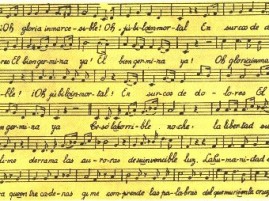 ¡Oh gloria inmarce- si- ble! ¡Oh jú- bi- lo in mor- tal! En sur- cos de d
res El bien ger- mi- na ya! El bien ger- mi- na ya! Oh gloria inmar
ble! ¡Oh jú- bi- lo in mor- tal! En sur- cos de do- lo- res El
en ger- mi- na ya Ce- só la ho rri- ble no- che. la libertad su
li- me derrama las au- ro- ras de su invencible luz. La hu- ma- ni- dad e
ra que en tre ca- de- nas gi- me com- prende las pa- la- bras del que murió en la cruz